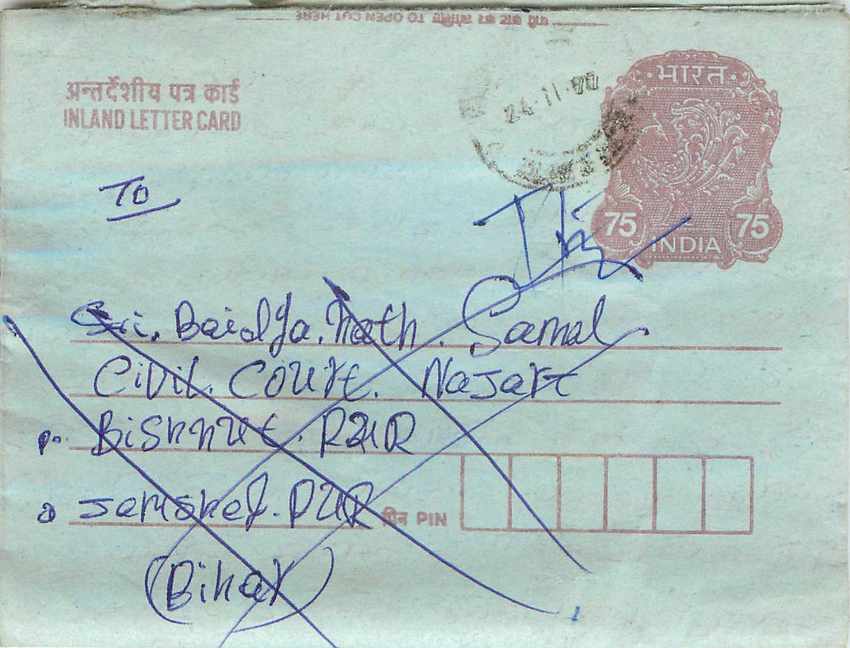 पत्र काट कर खोलिए TO OPEN CUT HERE
अन्तर्देशीय पत्र कार्ड
INLAND LETTER CARD
24-11-90
भारत
75 75
INDIA
TO
Sri. Baidya. Nath. Samal
Civil. Court. Najart
P. Bishnut. PUR
Jamshef. PUR
पिन PIN
(Bihar)